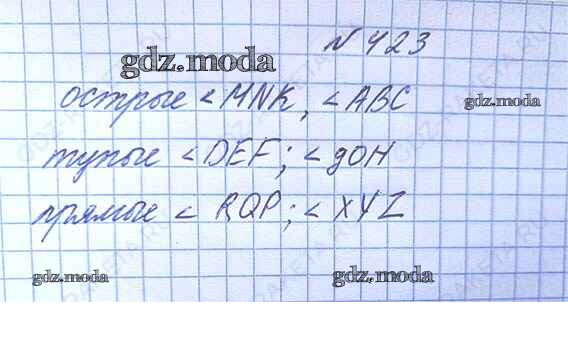 N 423
gdz.moda
острые <MNK, <ABC
gdz.moda
тупые <DEF; <дОН
прямые < RQP; < XYZ
gdz.moda
gdz.moda